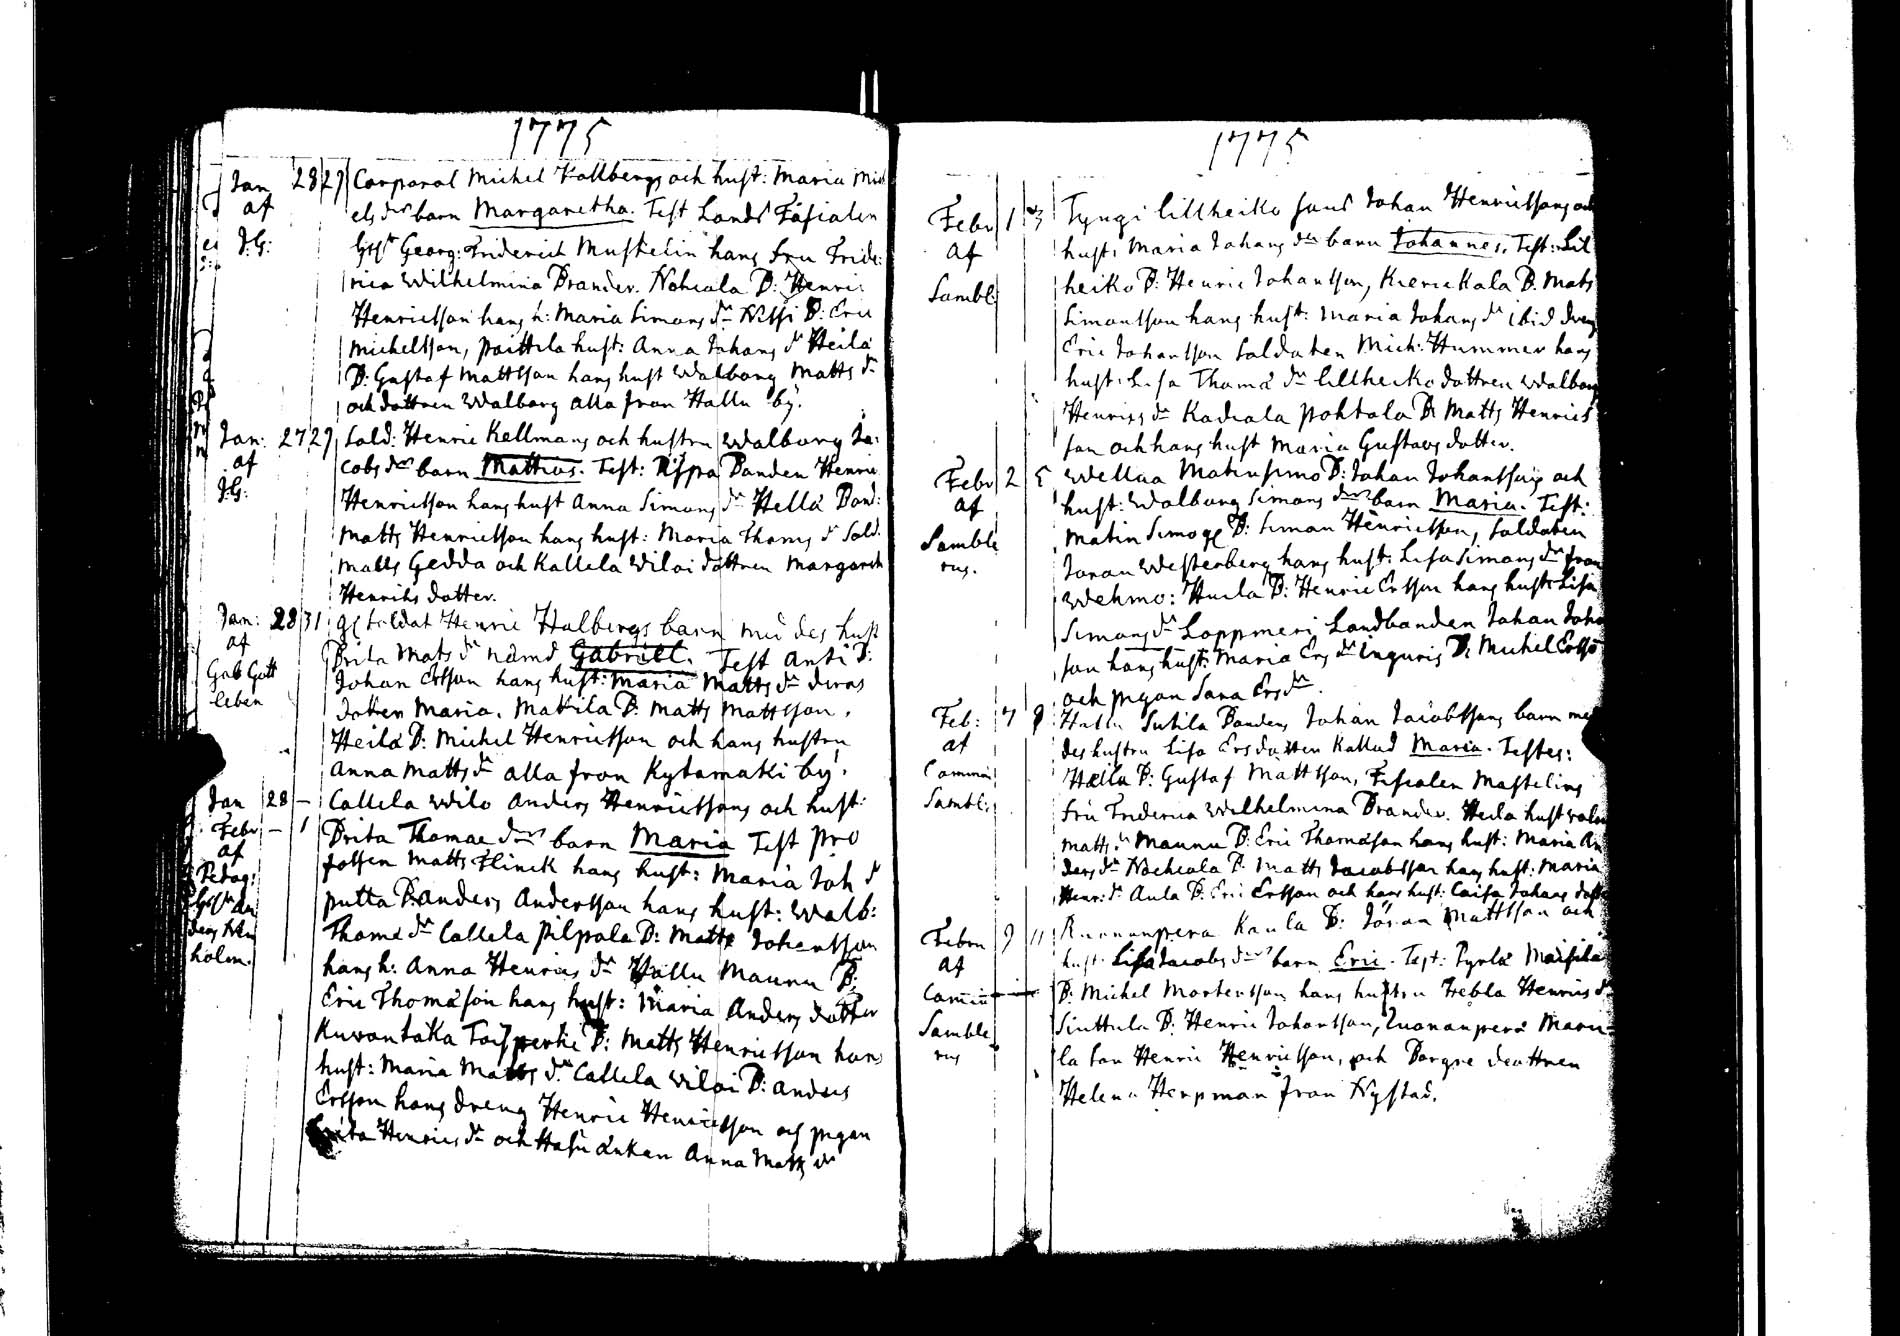 1775
Jan 28 29 Corporal Michel Kallbergs och hust: Maria Mich
af els dr barn Margaretha. Test Lands Fiscalen
J.G: Georg: Friderich Muskelin hans fru Fride:
rica Wilhelmina Brander. Nohcala B: Henric
Henricsson hans h: Maria Simons dr Nissi B: Eric
Michelsson, Poittila hust: Anna Johans dr Heilä
B: Gustaf Mattsson hans hust Walborg Matts dr
och dottren Walborg alla fron Hallu by.
Jan: 27 29 Sold: Henric Kellmans och hustru Walborg Ja:
af cobs dr barn Mathias. Test: Bonden Henric
J.G: Henricsson hans hust Anna Simons dr Hellä Bond:
Matts Henricsson hans hust: Maria Thoms dr Sold:
Matts Gedda och Kallela Wiloi dottren Margareth
Henrichs dotter.
Jan: 28 31 Soldat Henric Halbergs barn med des hust
af Brita Mats dr nämd Gabriell. Test Anti B:
Gab Gott Johan Ersson hans hust: Maria Matts dr deras
leben doter Maria. Makila B: Matts Mattsson.
Heilä B: Michel Henricsson och hans hustru
Anna Matts dr alla fron Kytämäki by.
Jan 28 – Callela Wilo Anders Henricssons och hust:
Febr – 1 Brita Thomae dr barn Maria Test pro
af fossen Matts Flinck hans hust: Maria Joh dr
Pedag: Putta B: Anders Andersson hans hust: Walb:
Thome dr Callela Pilpola B: Matts Johansson
hans h: Anna Henrics dr Hallu Maunu B:
holm. Eric Thomasson hans hust: Maria Anders dotter
Kuwantaka B: Matts Henricsson hans
hust: Maria Matts dr Callela Wiloi B: Anders
Ersson hans dreng Henric Henricsson och pigan
Brita Henrics dr och Hasu änkan Anna Matts dr
1775
Febr 1 3 Tyngi lillheiko sons Johan Henricssons och
af hust: Maria Johans dr barn Johannes. Test: Lil
Sambl: heiko B: Henric Johansson, Kierickala B: Mats
Simonsson hans hust: Maria Johans dr ibid dreng
Eric Johansson Soldaten Mich: Hummer hans
hust: Lisa Thomä dr lillheiko dottren Walborg
Henrics dr Kadiala Pohtola B: Matts Henrics
son och hans hust Maria Gustavs dotter.
Febr 2 5 Wellua Matinsimo B: Johan Johanssons och
af hust: Walborg Simons dr barn Maria. Test:
Samble Matin Simo B: Simon Henricsson, Soldaten
rus. Joran Westerberg hans hust: Lisa Simons dr fron
Wehmo: Huila B: Henric Ersson hans hust: Lisa
Simons dr Loppmeri Landbonden Johan Joha
son hans hust: Maria Ers dr Inguris B: Michel Ersso
och pigan Sara Ers dr.
Feb: 7 9 Hallu Sutila Bondens Johan Jacobssons barn med
af des hustru Lisa Ersdotter Kallad Maria. Testes:
Commi Heilu B: Gustaf Mattsson, Fiscalen Mastelins
Sambl: fru Friderica Wilhelmina Brander. Heila hust walb
matts dr Maunu B: Eric Thomasson hans hust: Maria An
ders dr Nochcola B: Matts Jacobsson hans hust: Maria
Henr: dr Aula B: Eric Ersson och hans hust: Caisa Johans dott
Febru 9 11 Kaula B: Jöran Mattsson och
af hust: Lisa Jacobs dr barn Eric. Test: Pyrlä
Commi B: Michel Mortensson hans hustru Hebla Henrics dr
Samble Siuttula B: Henric Johansson, Maru
rus la son Henric Henricsson, och Borgre deottren
Helena Herpman fron Nystad.